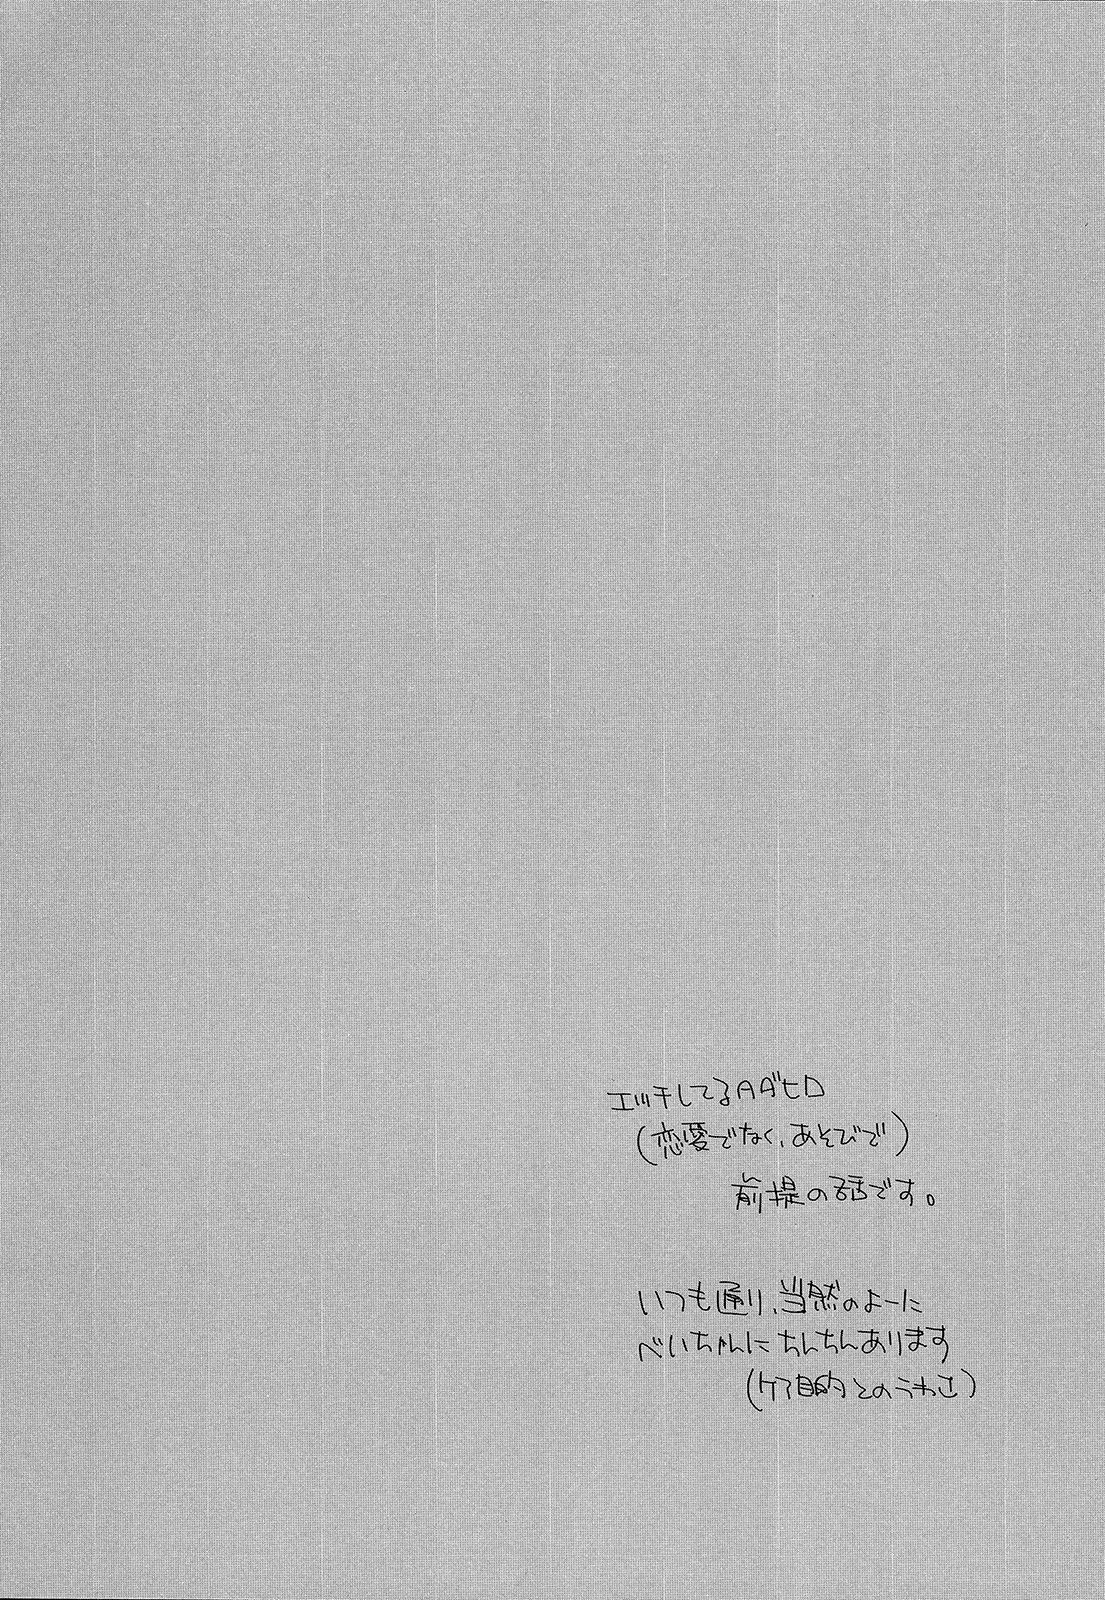 エッチしてるAダヒD
(恋愛でなく、あそびで)
前提の話です。
いつも通り、当然のよーに
べいちゃんにちんちんあります
(ケア目的とのうわさ)